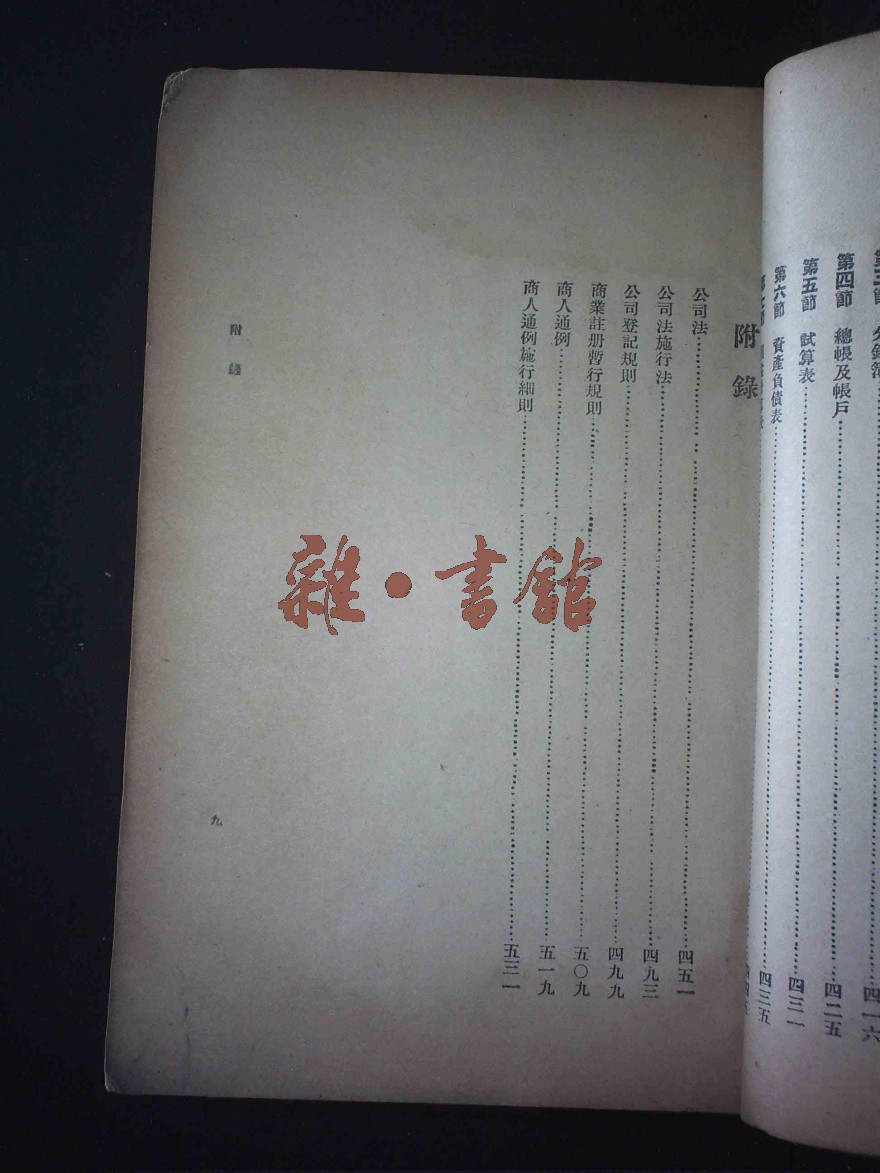 第四節 總帳及帳戶 四二五
第五節 試算表 四三一
第六節 資產負債表 四三五
附錄
公司法 四五一
公司法施行法 四九三
公司登記規則 四九九
商業註册暫行規則 五〇九
商人通例 五一九
商人通例施行細則 五三一
附錄
九
雜·書館